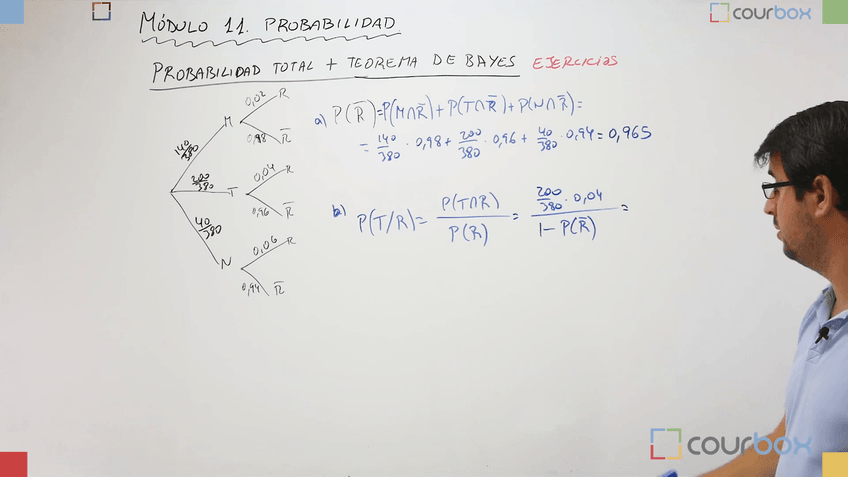 MÓDULO 11. PROBABILIDAD
courbox
PROBABILIDAD TOTAL + TEOREMA DE BAYES EJERCICIOS
140/380 M 0,02 R
0,98 R̅
200/380 T 0,04 R
0,96 R̅
40/380 N 0,06 R
0,94 R̅
a) P(R̅)=P(M∩R̅)+P(T∩R̅)+P(N∩R̅)=
= 140/380 · 0,98 + 200/380 · 0,96 + 40/380 · 0,94 = 0,965
b) P(T/R)= P(T∩R)/P(R) = (200/380 · 0,04)/(1-P(R̅)) =
courbox